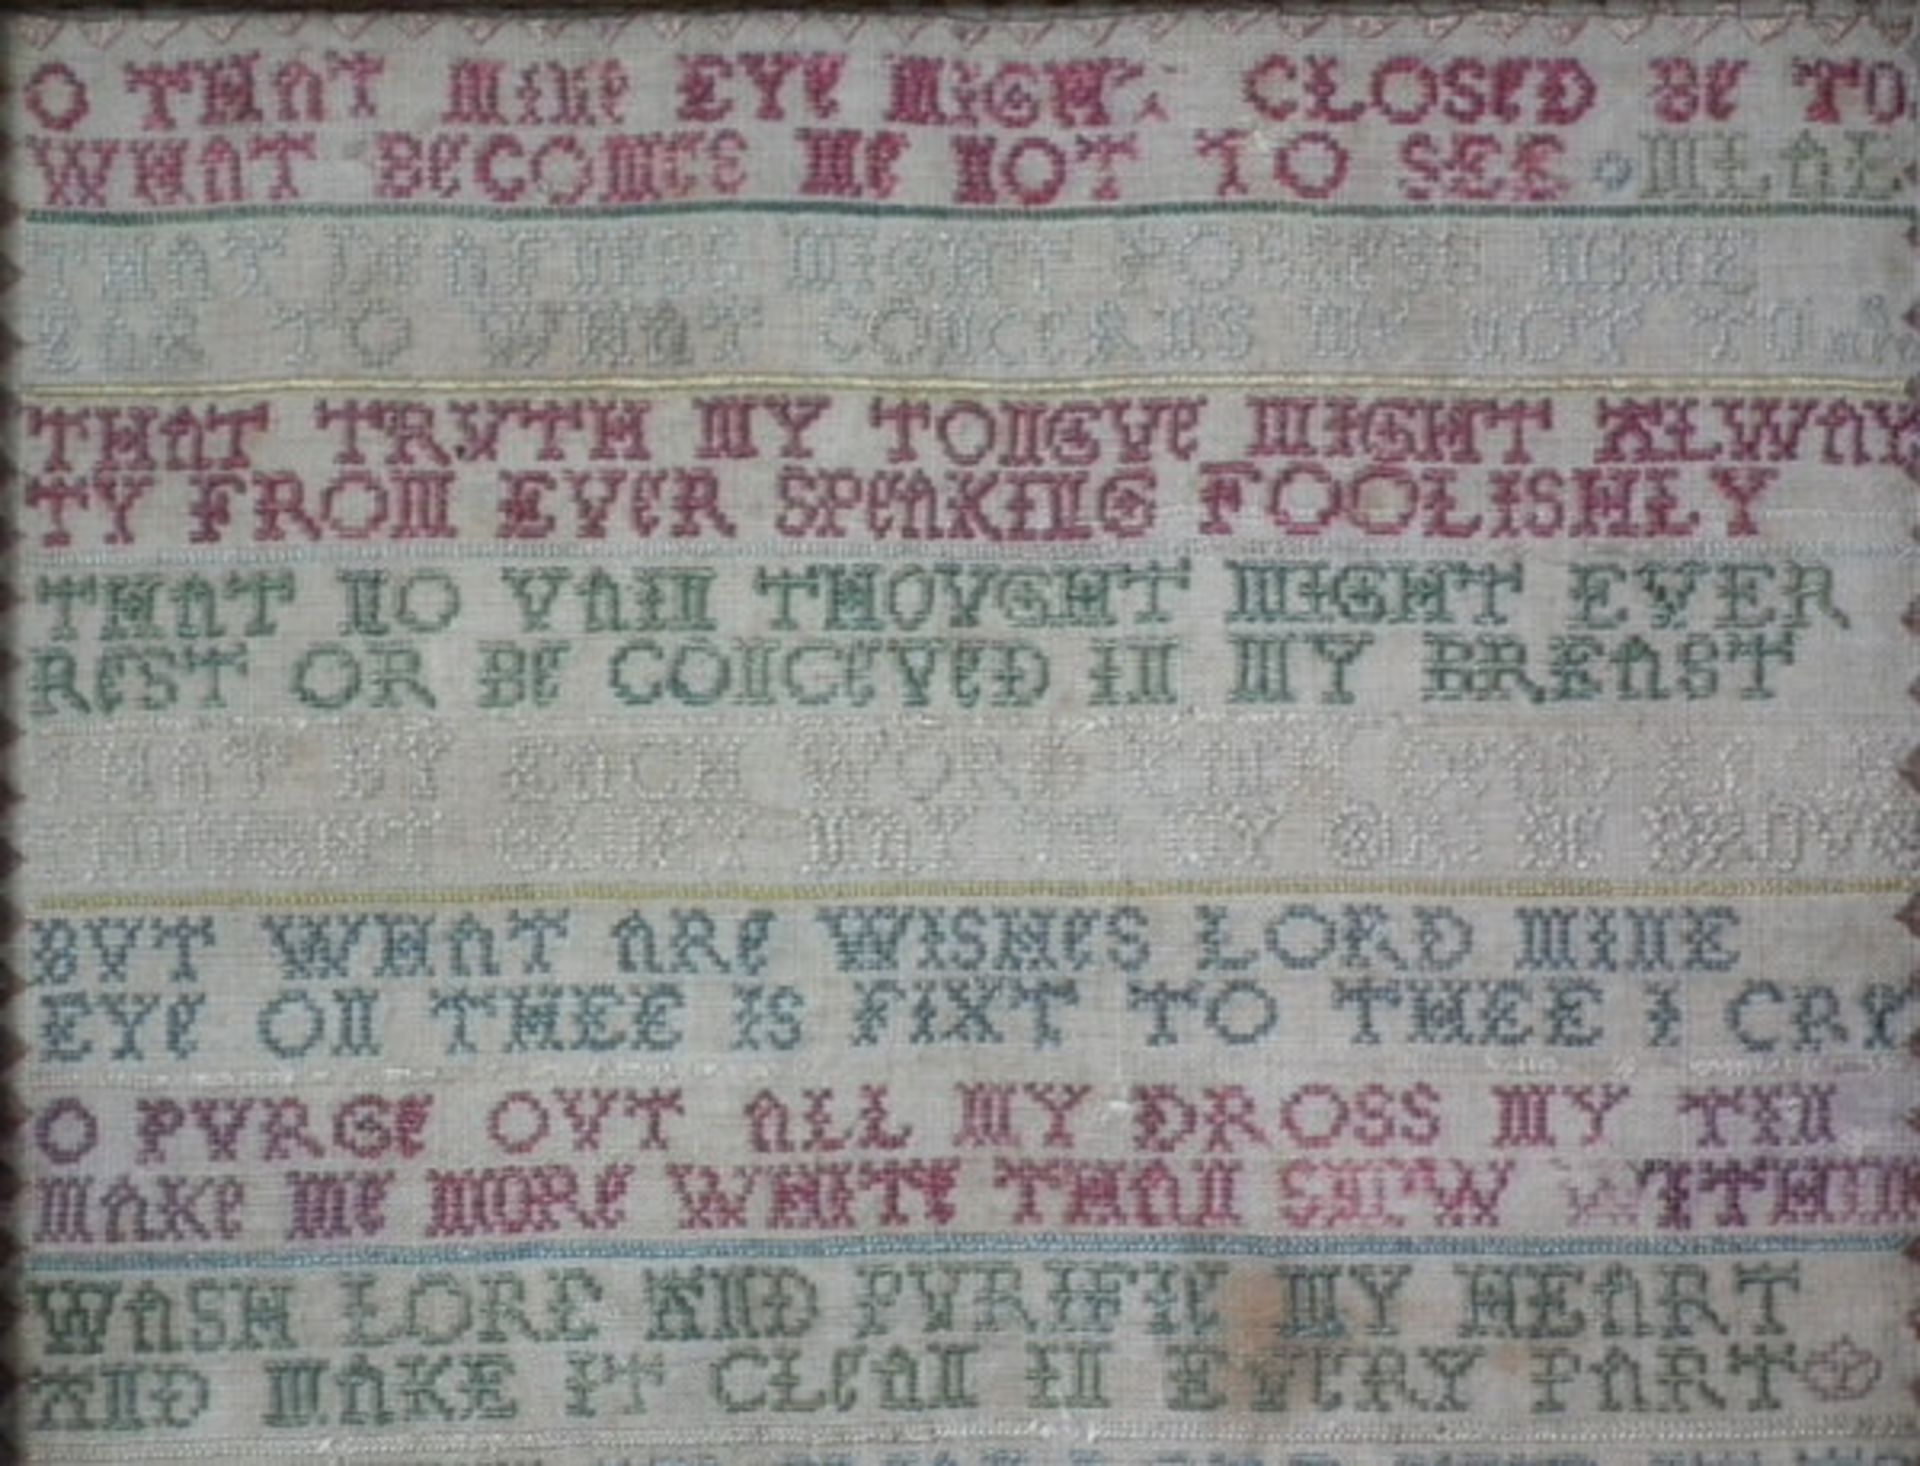 O THAT MINE EYE MIGHT CLOSED BE TO
WHAT BECOMES ME NOT TO SEE
THAT DEAFNESS MIGHT POSSESS MINE
EAR TO WHAT CONCERNS ME NOT TO
THAT TRVTH MY TONGVE MIGHT ALWAY
TY FROM EVER SPEAKING FOOLISHLY
THAT NO VAIN THOVGHT MIGHT EVER
REST OR BE CONCEVED IN MY BREAST
THAT BY EACH WORD EACH DEED EACH
THOVGHT GLORY MAY TO MY
BVT WHAT ARE WISHES LORD MINE
EYE ON THEE IS FIXT TO THEE I CRY
O PVRGE OVT ALL MY DROSS MY TIN
MAKE ME MORE WHITE THAN SNOW WITHIN
WASH LORD AND PVRIFIE MY HEART
AND MAKE IT CLEAN IN EVERY PART